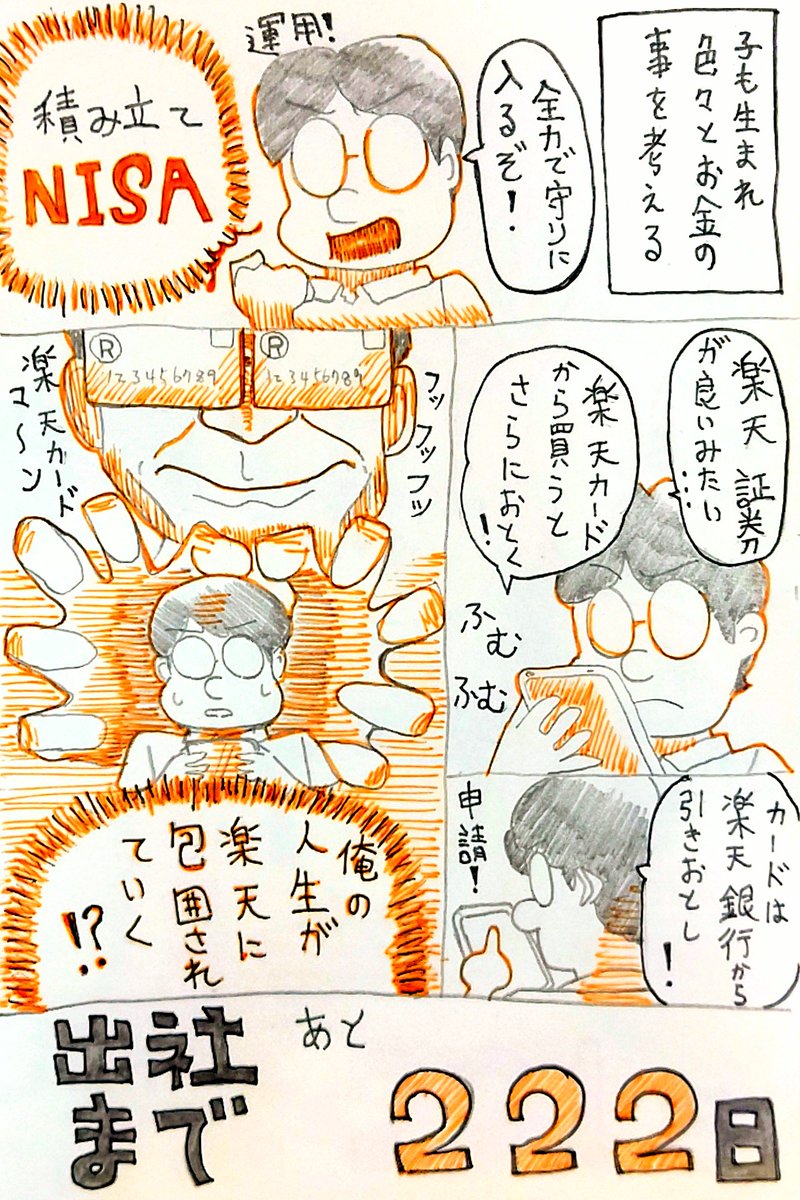 子も生まれ
色々とお金の
事を考える
全力で守りに
入るぞ!
運用!
積み立て
NISA
楽天証券
が良いみたい…
楽天カード
から買うと
さらにおとく!
ふむ
ふむ
カードは
楽天銀行から
引きおとし!
申請!
フッフッフッ
R
123456789
R
123456789
楽天カード
マ〜ン
俺の
人生が
楽天に
包囲され
ていく
!?
出社
まで
あと
222日